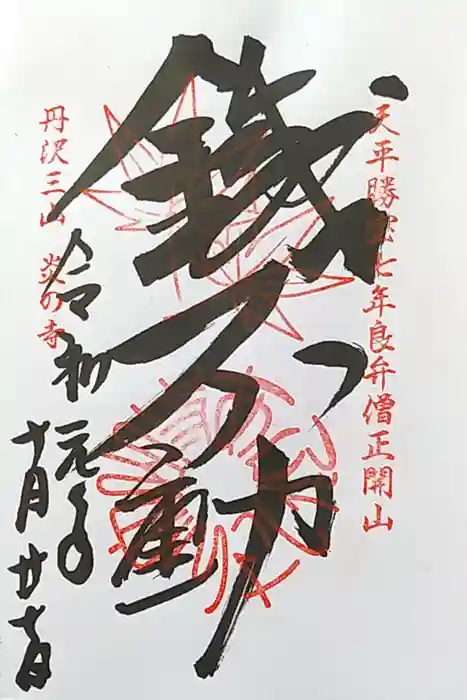 天平勝宝七年良弁僧正開山
銭不動
丹沢三山 炎の寺
令和元年
十月廿日